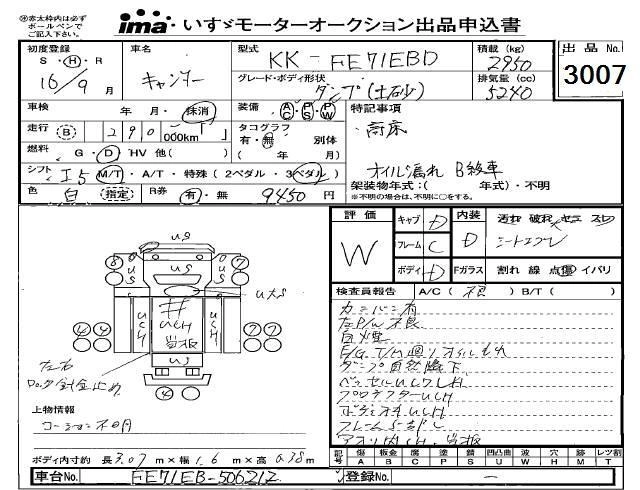 ㊟赤太枠内は必ず
ボールペンで
ご記入下さい。
ima いすゞモーターオークション出品申込書
初度登録 車名 型式 積載(kg) 出品No.
S・H・R キャンター KK-FE71EBD 2950 3007
16/9月 グレード・ボディ形状 ダンプ(土砂) 排気量(cc) 5240
車検 年 月・抹消 装備 AC PS PW 特記事項
走行 B 290,000km タコグラフ 有・無 別体 高床
燃料 G・D HV 他( ) ( 年 月)
シフト I5 M/T・A/T・特殊(2ペダル・3ペダル) オイル漏れ B級車
架装物年式:( 年式)・不明
色 白 指定 R券 有・無 9450円 ※不明の場合は、不明に○をする。
評価 W キャブ D 内装 D 汚れ 破れ
フレーム C シートエプレ
ボディ D Fガラス 割れ 線 点 傷 イバリ
検査員報告 A/C(不良) B/T( )
カンバン有
左P/W不良
白煙
E/G.T/M廻りオイルもれ
ダンプ自然降下
ベッセルUCワLH
プロテクターUCH
フレームSサビC
us
us
us
UCH
UCH
UCH
us
左右
上物情報
コーション不明
ボディ内寸約 長3.07m×幅1.6m×高0.38m
記号 傷 板金 腐 塗 錆 凹凸曲 波 穴 跡 レツ割
A B C P S U W H M T
車台No. FE71EB-506212 登録No. —